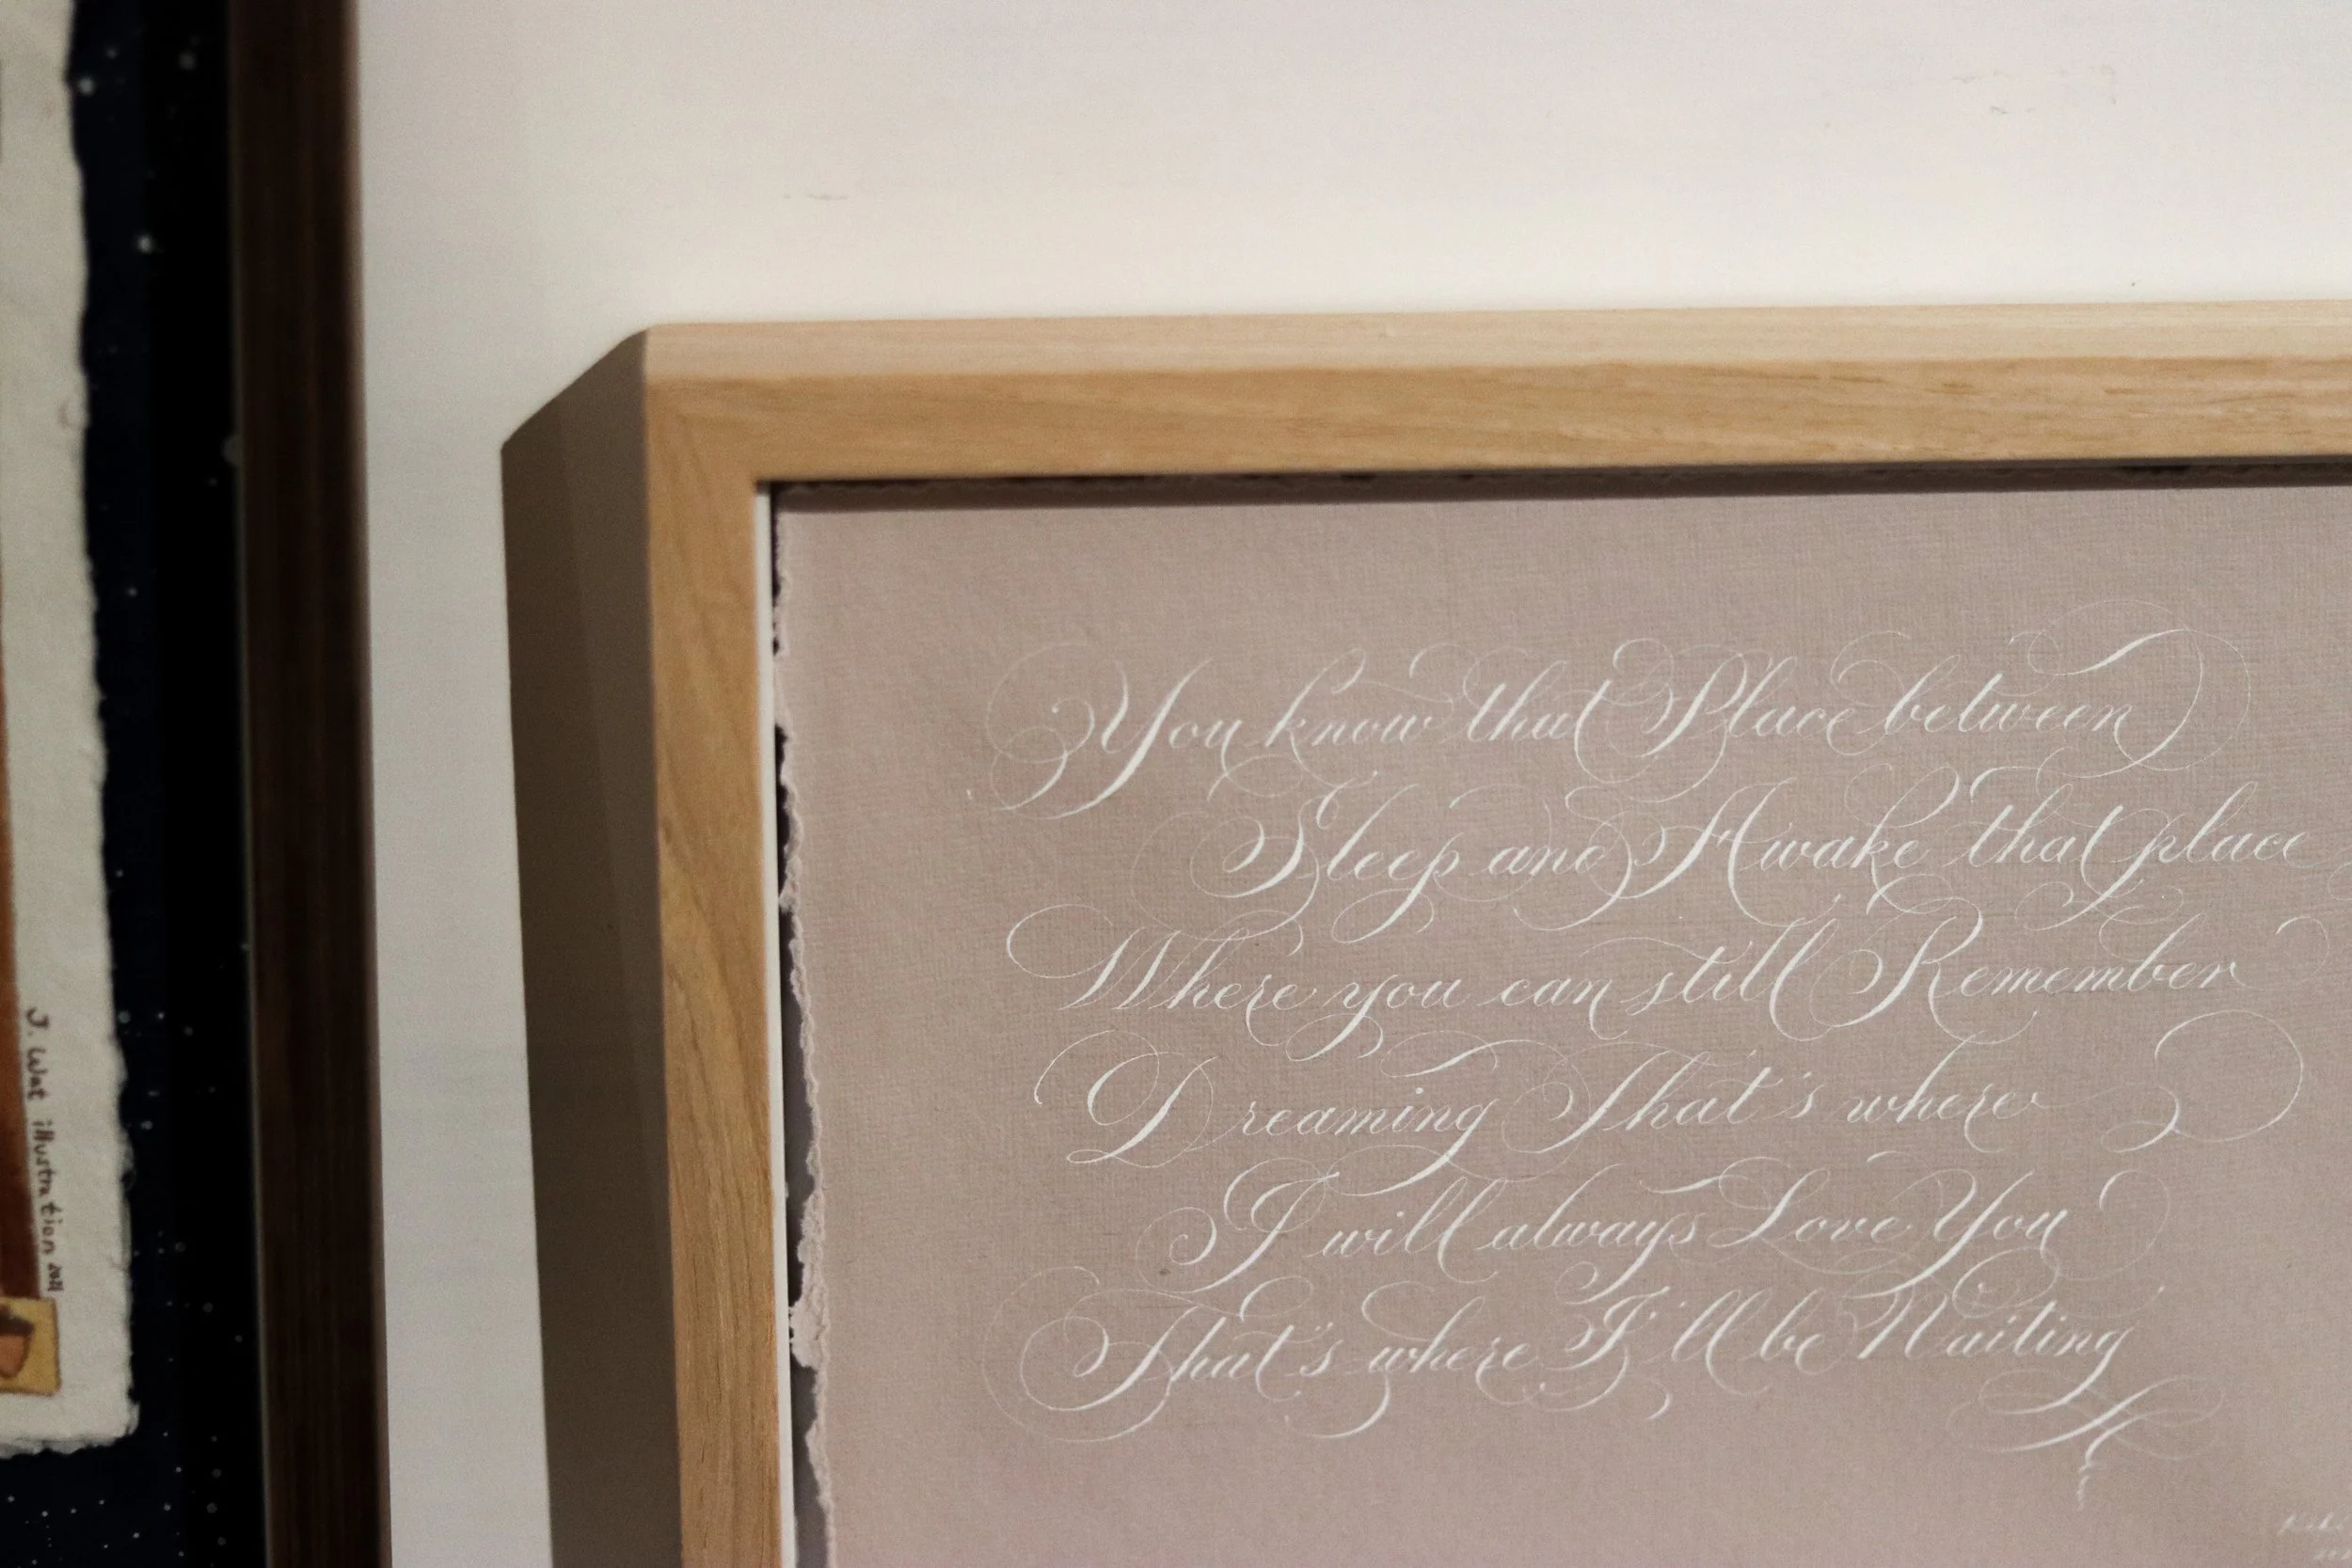 You know that Place between
Sleep and Awake that place
Where you can still Remember
Dreaming That's where
I will always Love You
That's where I'll be Waiting
J. Wat illustration 2021